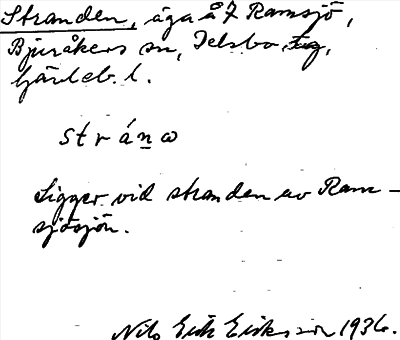 Stranden, äga å 7 Ramsjö,
Bjuråkers sn, Delsbo tg,
Gävleb. l.
stránω
Ligger vid stranden av Ram-
sjösjön.
Nils Erik Eriksson 1936.